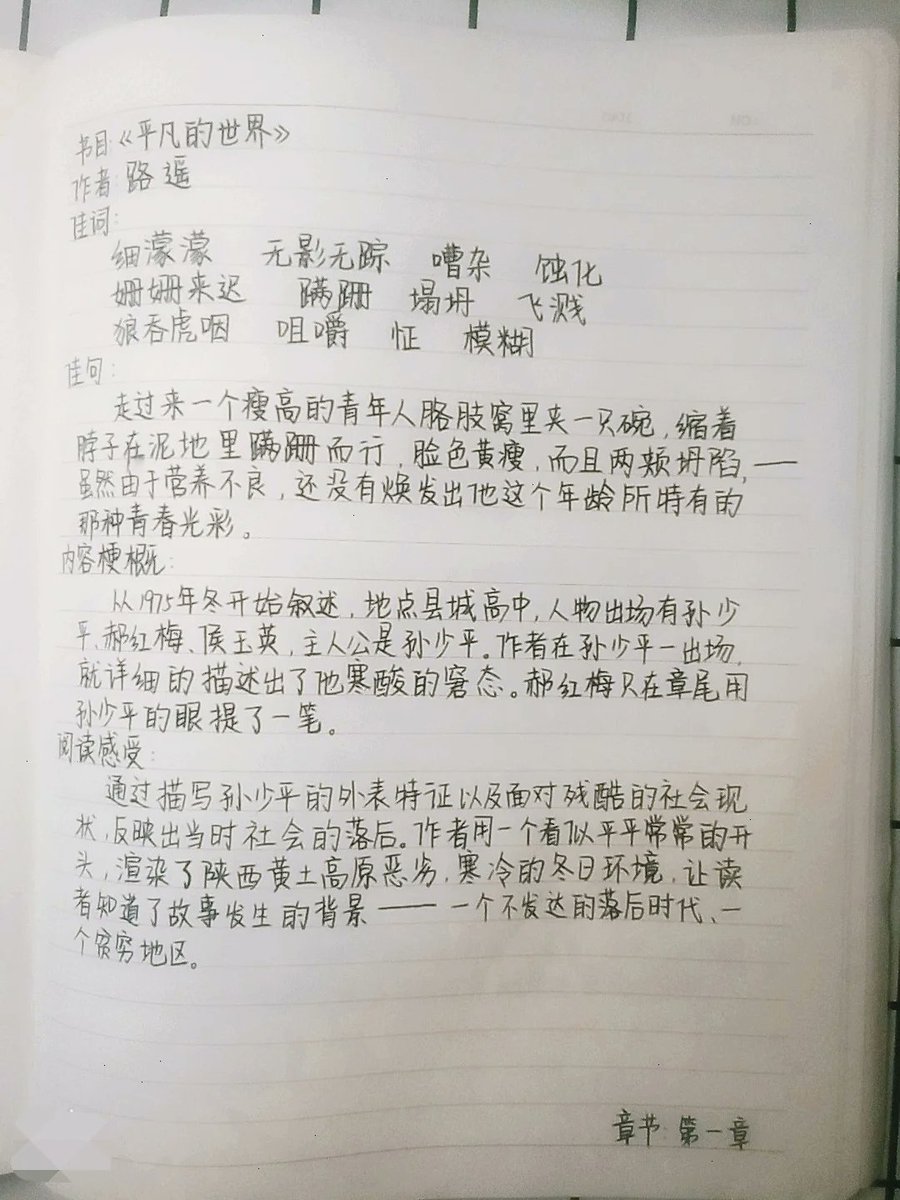 书目:《平凡的世界》
作者:路遥
佳词:
细濛濛 无影无踪 嘈杂 蚀化
姗姗来迟 蹒跚 塌坍 飞溅
狼吞虎咽 咀嚼 怔 模糊
佳句:
走过来一个瘦高的青年人胳肢窝里夹一只碗,缩着
脖子在泥地里蹒跚而行,脸色黄瘦,而且两颊坍陷,——
虽然由于营养不良,还没有焕发出他这个年龄所特有的
那种青春光彩。
内容梗概:
从1975年冬开始叙述,地点县城高中,人物出场有孙少
平、郝红梅、侯玉英,主人公是孙少平。作者在孙少平一出场,
就详细的描述出了他寒酸的窘态。郝红梅只在章尾用
孙少平的眼提了一笔。
阅读感受:
通过描写孙少平的外表特征以及面对残酷的社会现
状,反映出当时社会的落后。作者用一个看似平平常常的开
头,渲染了陕西黄土高原恶劣,寒冷的冬日环境,让读
者知道了故事发生的背景——一个不发达的落后时代、一
个贫穷地区。
章节:第一章